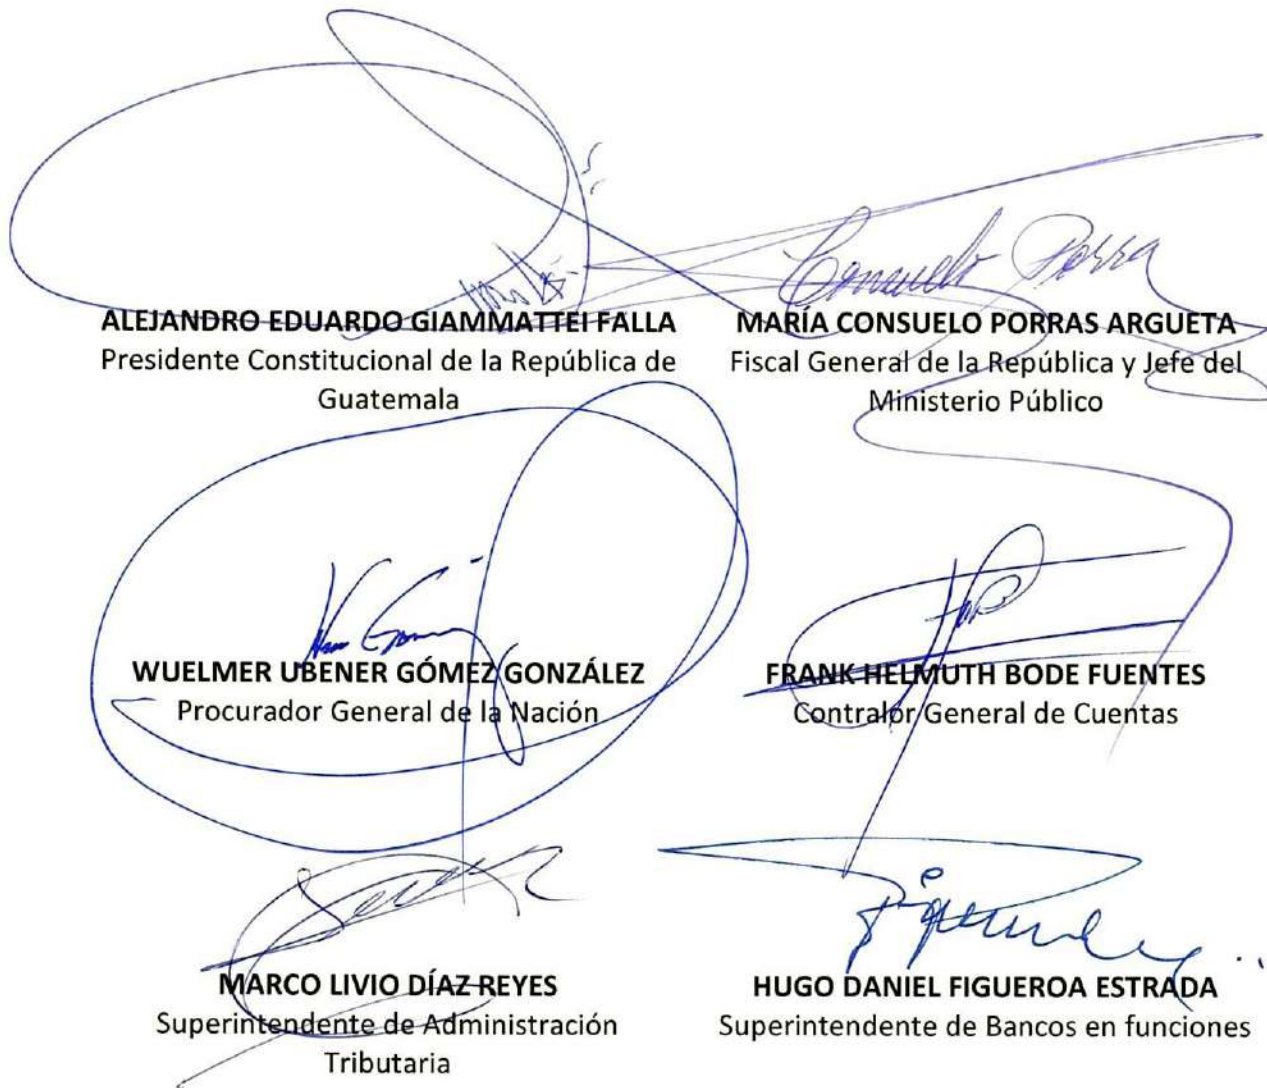 Consuelo Porra
ALEJANDRO EDUARDO GIAMMATTEI FALLA
Presidente Constitucional de la República de
Guatemala
MARÍA CONSUELO PORRAS ARGUETA
Fiscal General de la República y Jefe del
Ministerio Público
WUELMER UBENER GÓMEZ GONZÁLEZ
Procurador General de la Nación
FRANK HELMUTH BODE FUENTES
Contralor General de Cuentas
MARCO LIVIO DÍAZ REYES
Superintendente de Administración
Tributaria
HUGO DANIEL FIGUEROA ESTRADA
Superintendente de Bancos en funciones